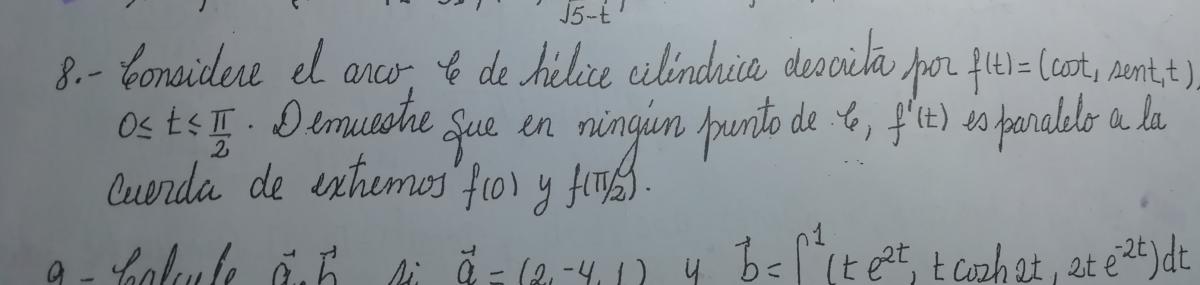 √5-t
8.- Considere el arco C de hélice cilíndrica descrita por f(t)=(cost, sent, t),
0≤ t ≤ π/2. Demuestre que en ningún punto de C, f'(t) es paralelo a la
cuerda de extremos f(0) y f(π/2).
9.- Calcule a⃗.b⃗ si a⃗ = (2,-4,1) y b⃗ = ∫¹(t e^2t, t cosh 2t, 2t e^-2t)dt